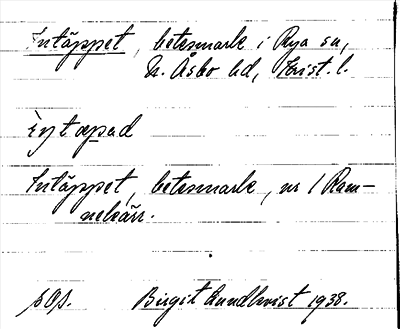 Intäppet, betesmark i Rya sn,
N. Åsbo hd, Krist. l.
Intäppet, betesmark, nr 1 Ram-
nekärr.
sOs. Birgit Lundkvist 1938.